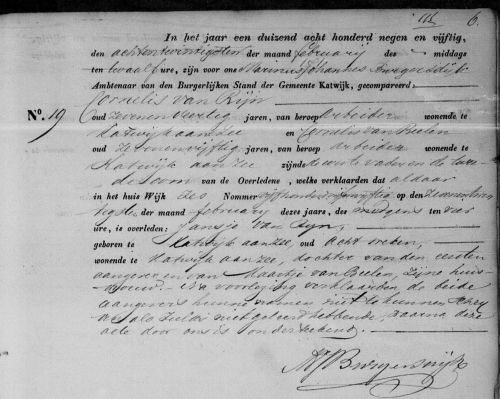 6.
In het jaar een duizend acht honderd negen en vijftig,
den achtentwintigsten der maand februarij des middags
ten twaalf ure, zijn voor ons Marinus Johannes Burgersdijk
Ambtenaar van den Burgerlijken Stand der Gemeente Katwijk, gecompareerd:
Cornelis van Rijn
No. 19 oud zevenenveertig jaren, van beroep Arbeider wonende te
Katwijk aan Zee en van Beelen
oud jaren, van beroep Arbeider wonende te
Katwijk aan Zee zijnde de eerste vader en de tweede
oom van de Overledene, welke verklaarden dat aldaar
in het huis Wijk zes Nommer op den
der maand februarij dezes jaars, des morgens ten vier
ure, is overleden: Jansje van Rijn,
geboren te Katwijk aan Zee, oud acht weken,
wonende te Katwijk aan Zee, dochter van den eersten
aangever en van Maartje van Beelen, zijne huis-
vrouw. Na voorlezing verklaarden de beide
aangevers hunne namen niet te kunnen schrij
ven als zulks niet geleerd hebbende, waarna deze
acte door ons is onderteekend.
MJBurgersdijk